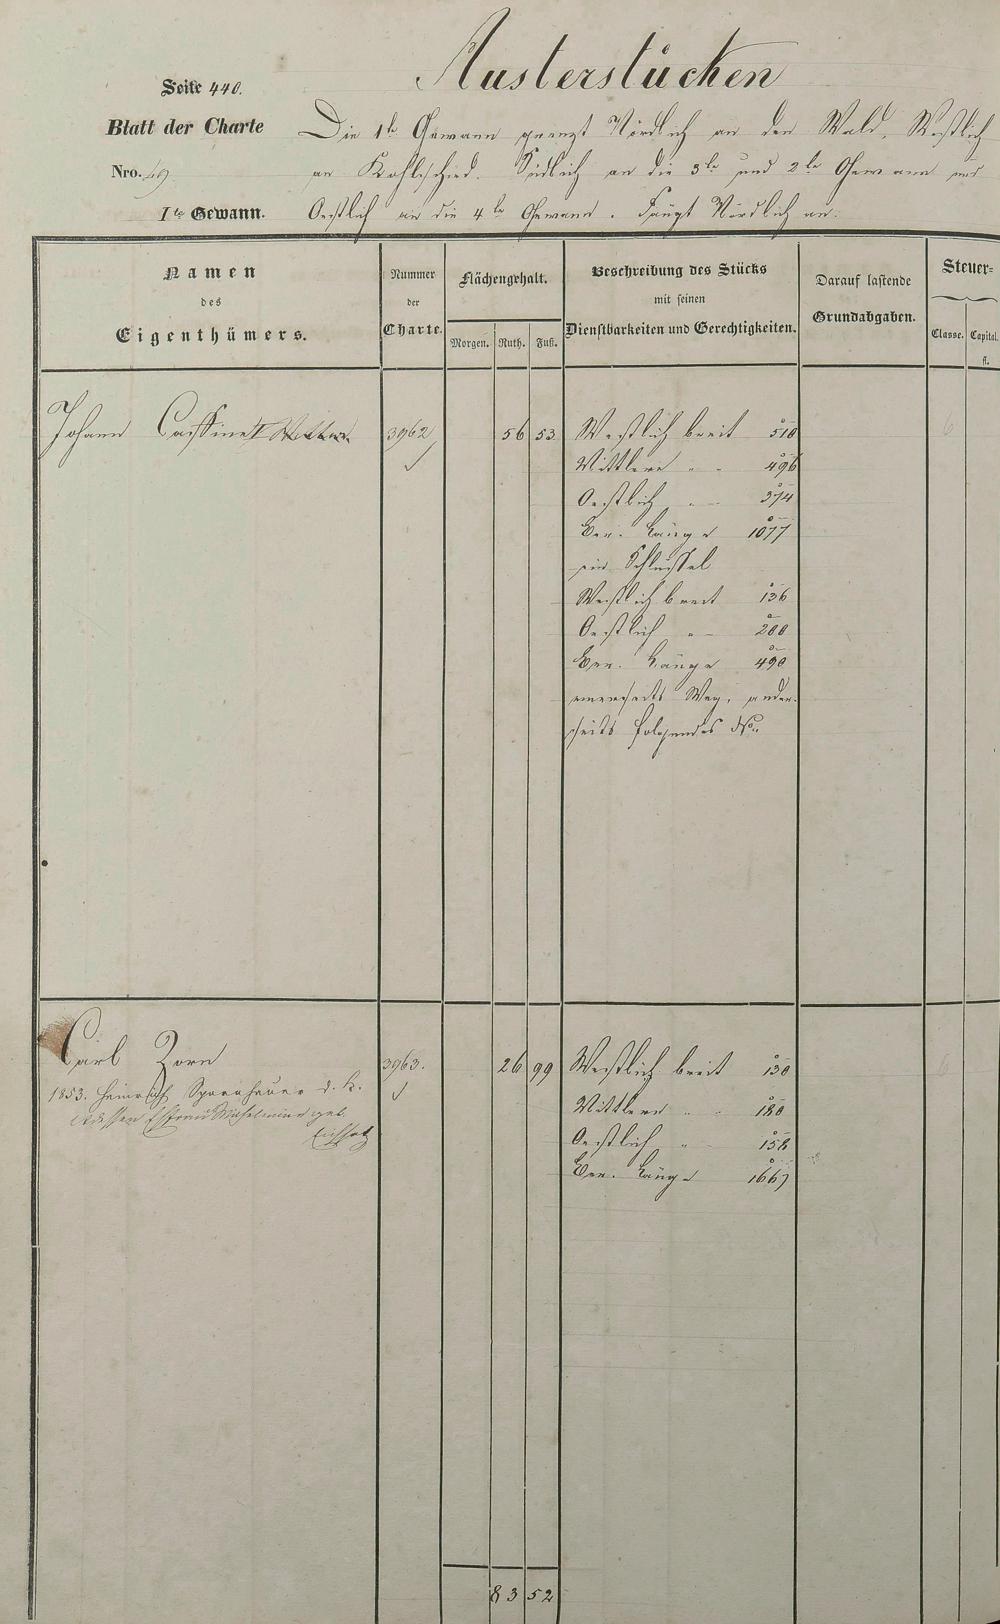 Austerstücken
Seite 440.
Blatt der Charte
Nro. 49
Ite Gewann.
Die 1te Gewann grenzt Nördlich an den Wald, Westlich
an Kohlischied. Südlich an die 3te und 2te Gewann und
Oestlich an die 4te Gewann. Fängt Nördlich an.
Namen
des
Eigenthümers.
Nummer
der
Charte.
Flächengehalt.
Morgen. Ruth. Fuß.
Beschreibung des Stücks
mit seinen
Dienstbarkeiten und Gerechtigkeiten.
Darauf lastende
Grundabgaben.
Steuer-
Classe. Capital.
fl.
Johann Cassinett 3962 56 53 Westlich breit 510
Mittlere " - 496
Oestlich " - 374
Ver. Länge 1077
ein Schlüssel
Westlich breit 136
Oestlich " - 200
Ver. Länge 490
einerseits Weg, ander-
seits folgendes No.
Carl Zorn 3963. 26 99 Westlich breit 130
1853. Heinrich Sponheuer d. K.
dessen Ehefrau Wilhelmine geb.
Mittlere " - 180
Oestlich " - 158
Ver. Länge 1667
83 52